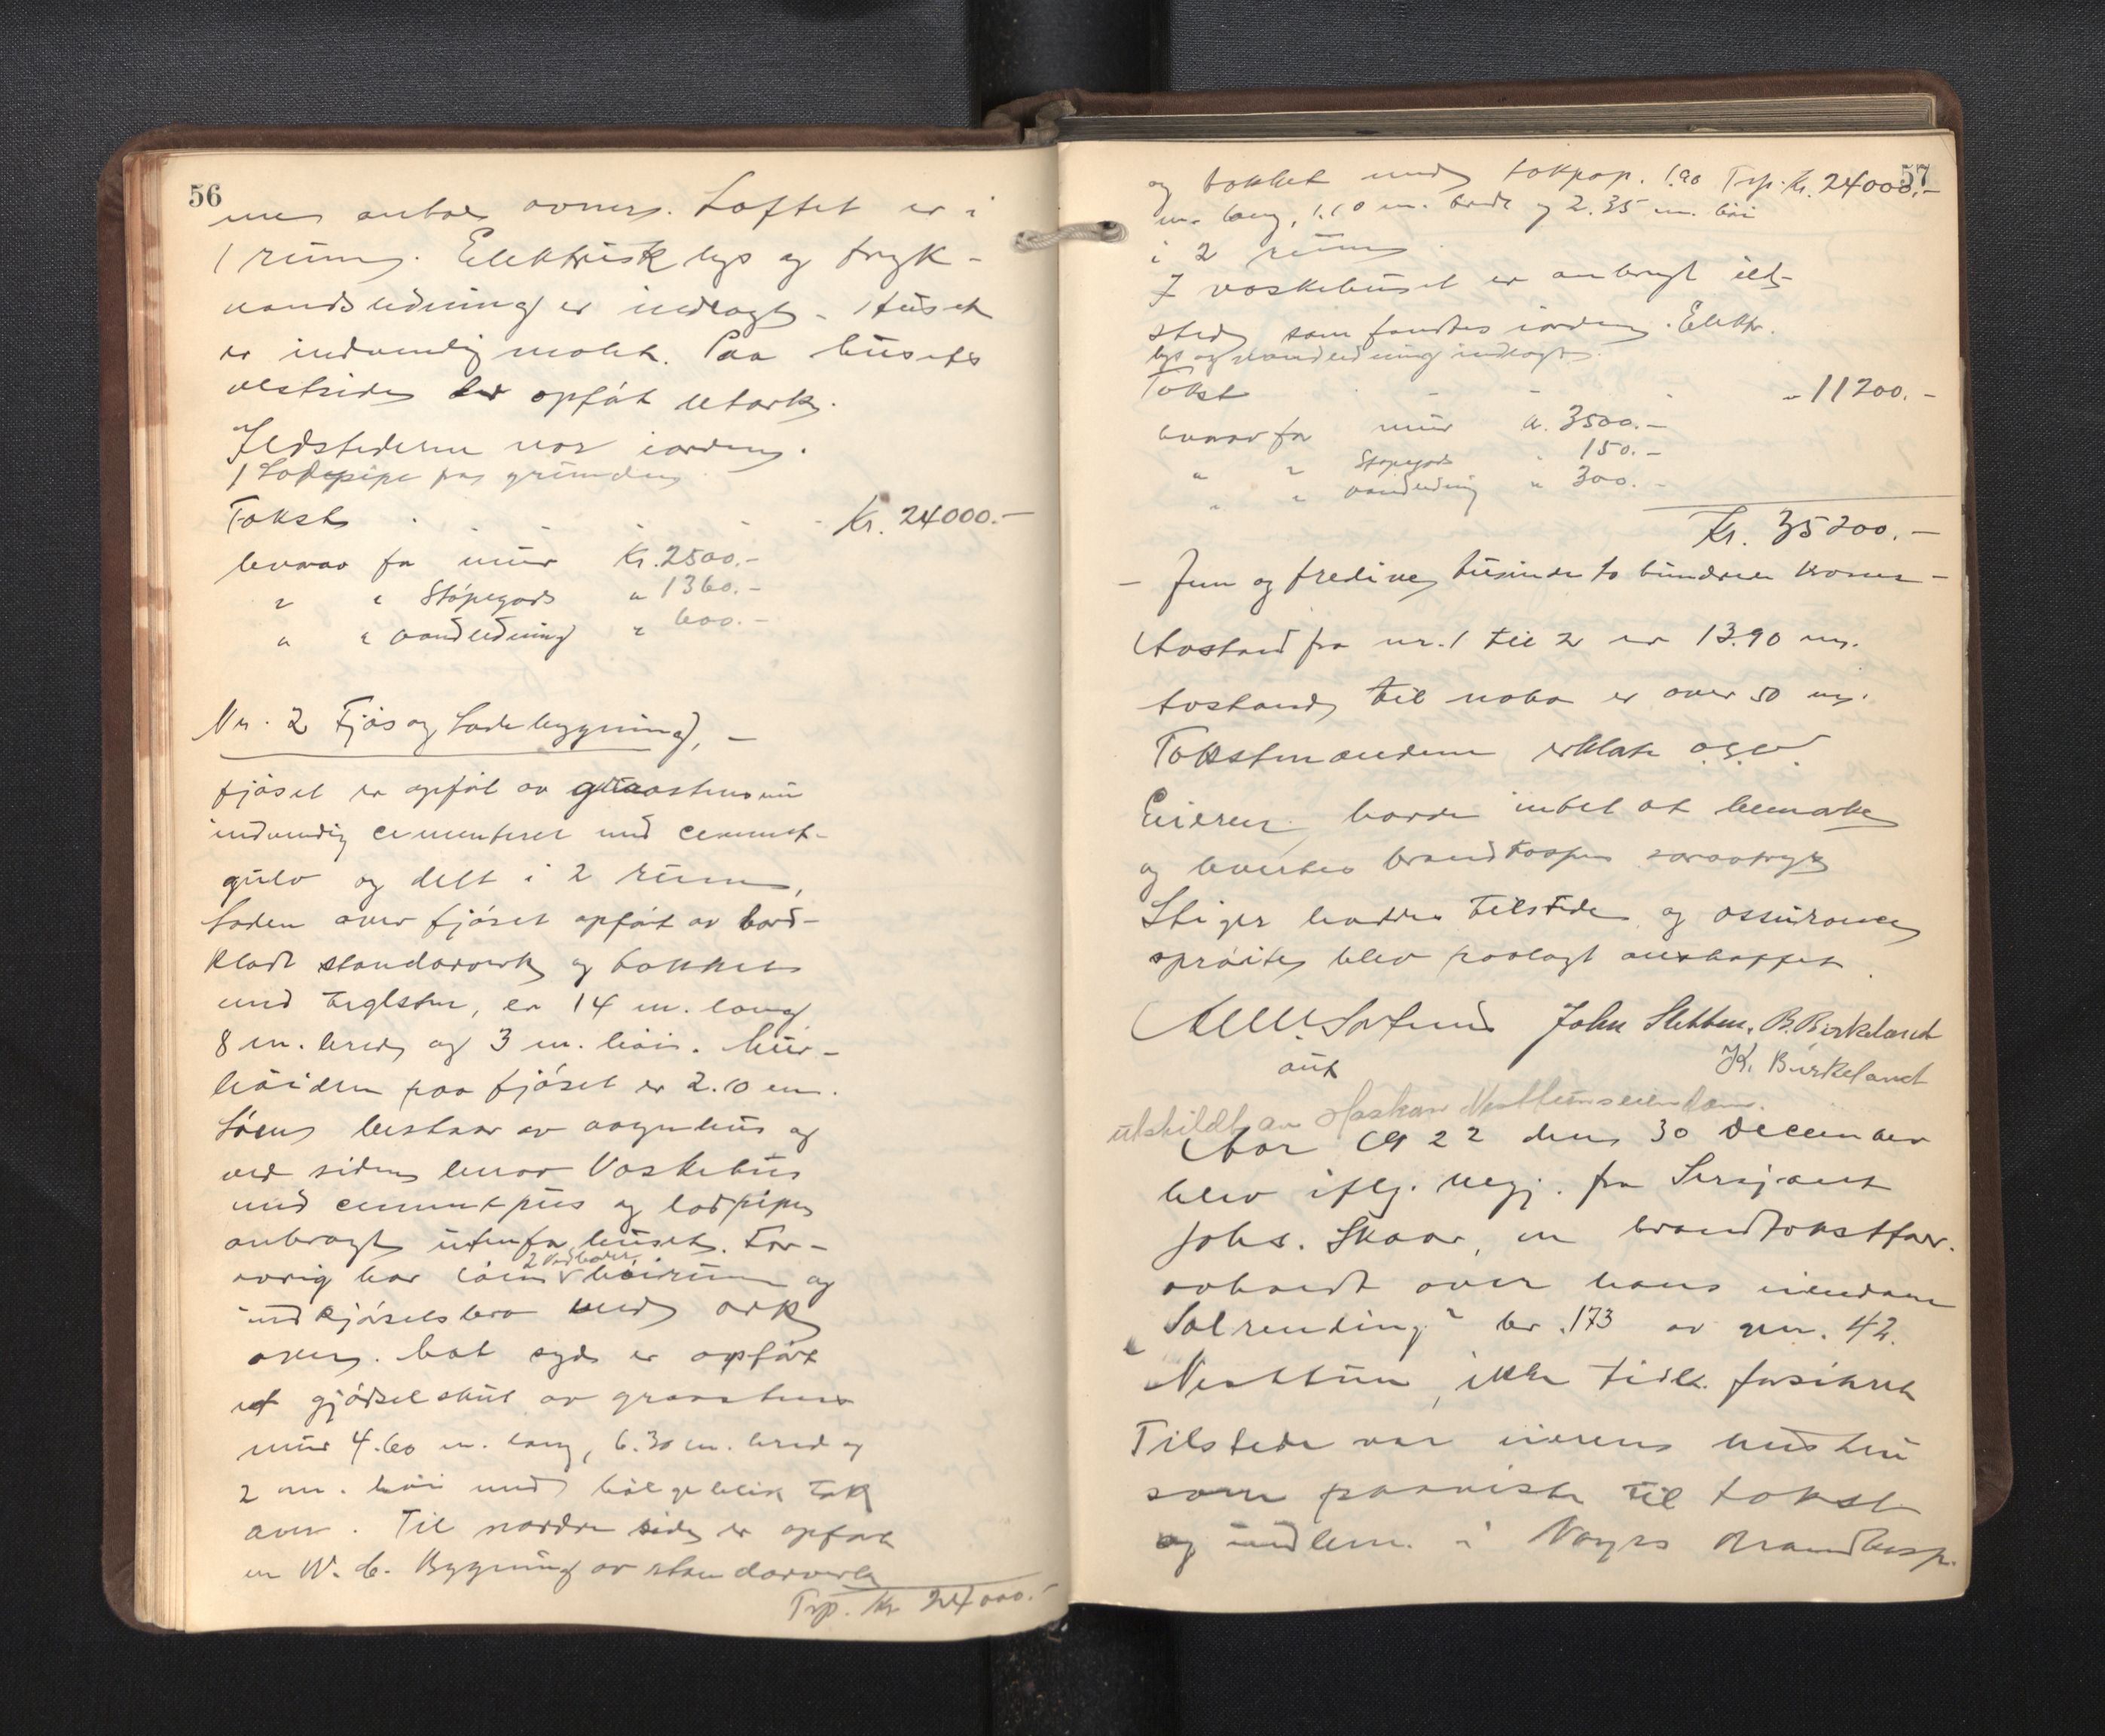 56
med anbov ovnen. Loftet er i
1 rum. Elektrisk lys og tryk-
vandsledning er indlagt. Huset
er indvendig malet. Paa husets
vestside er opført utark.
Ildstederne var iorden.
1 Lodpipe fra grunden
Takst . . . . Kr. 24000.-
hvorav for mur Kr. 2500.-
" " Støpegods " 1360.-
" " vandledning " 600.-
Nr. 2 Fjøs og Ladebygning, -
fjøset er opført av graastensmur
indvendig cementeret med cement-
gulv og delt i 2 rum,
Laden over fjøset opført av bord-
klædt standarverk og takket
med teglsten, er 14 m. lang
8 m. bred og 3 m. høi. Mur-
høiden paa fjøset er 2.10 m.
Løen bestaar av vognhus og
ved siden herav Vaskehus
med cementpus og lodpipe
anbragt utenfor huset. For-
øvrig har løen 2 høirum og
indkjørselsbro med ark
over. Mot syd er opført
et gjødselskur av graastens
mur 4.60 m. lang, 6.30 m. bred og
2 m. høi med bølgeblik tak
over. Til nordre side er opført
en W. C. Bygning av standarverk
Trp. Kr 24000.-
57
og takket med takpap. 1.90 Trp. Kr. 24000.-
m. lang, 1.10 m. bred og 2.35 m. høi
i 2 rum
I vaskehuset er anbragt ild-
sted som fandtes iorden. Elektr.
lys og vandledning indlagt.
Takst - - - " 11200.-
hvorav for mur Kr. 3500.-
" " Støpegods " 150.-
" " vandledning " 300.-
Kr. 35200.-
- Fem og tredive tusinde to hundrede kroner -
Avstand fra nr. 1 til 2 er 13.90 m.
Avstand til nabo er over 50 m.
Takstmændene erklærte o.s.v.
Eieren havde intet at bemærke
og hvertes brandkasse
Stiger havdes tilstede og assurance
sprøite blev paalagt anskaffet.
John Sletten, B. Birkeland
K. Birkeland
utskildt av Haakon Nesttuns eiendom.
Aar 1922 den 30 december
blev iflg. begj. fra Sersjant
Johs. Skaar, en brandtakstfor.
avholdt over hans eiendom
"Solrending" br. 173 av gnr. 42.
Nesttun, ikke tidl. forsikret
Tilstede var eierens hustru
som paaviste til takst
og indlem. i Norges Brandkasse.